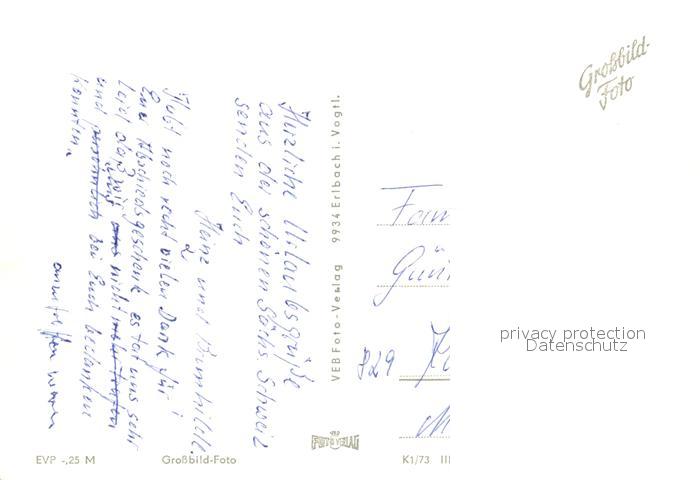 Herzliche Urlaubsgrüße
aus der schönen Sächs. Schweiz
senden Euch
Heinz und Brunhilde.
Habt noch recht vielen Dank für
Euer Abschiedsgeschenk, es tat uns sehr
leid daß wir nicht
und persönlich bei Euch bedanken
konnten.
VEB Foto-Verlag 9934 Erlbach i. Vogtl.
Großbild-
Foto
Fam
Gün
829
FOTO VERLAG
EVP -,25 M
Großbild-Foto
K1/73 III
privacy protection
Datenschutz